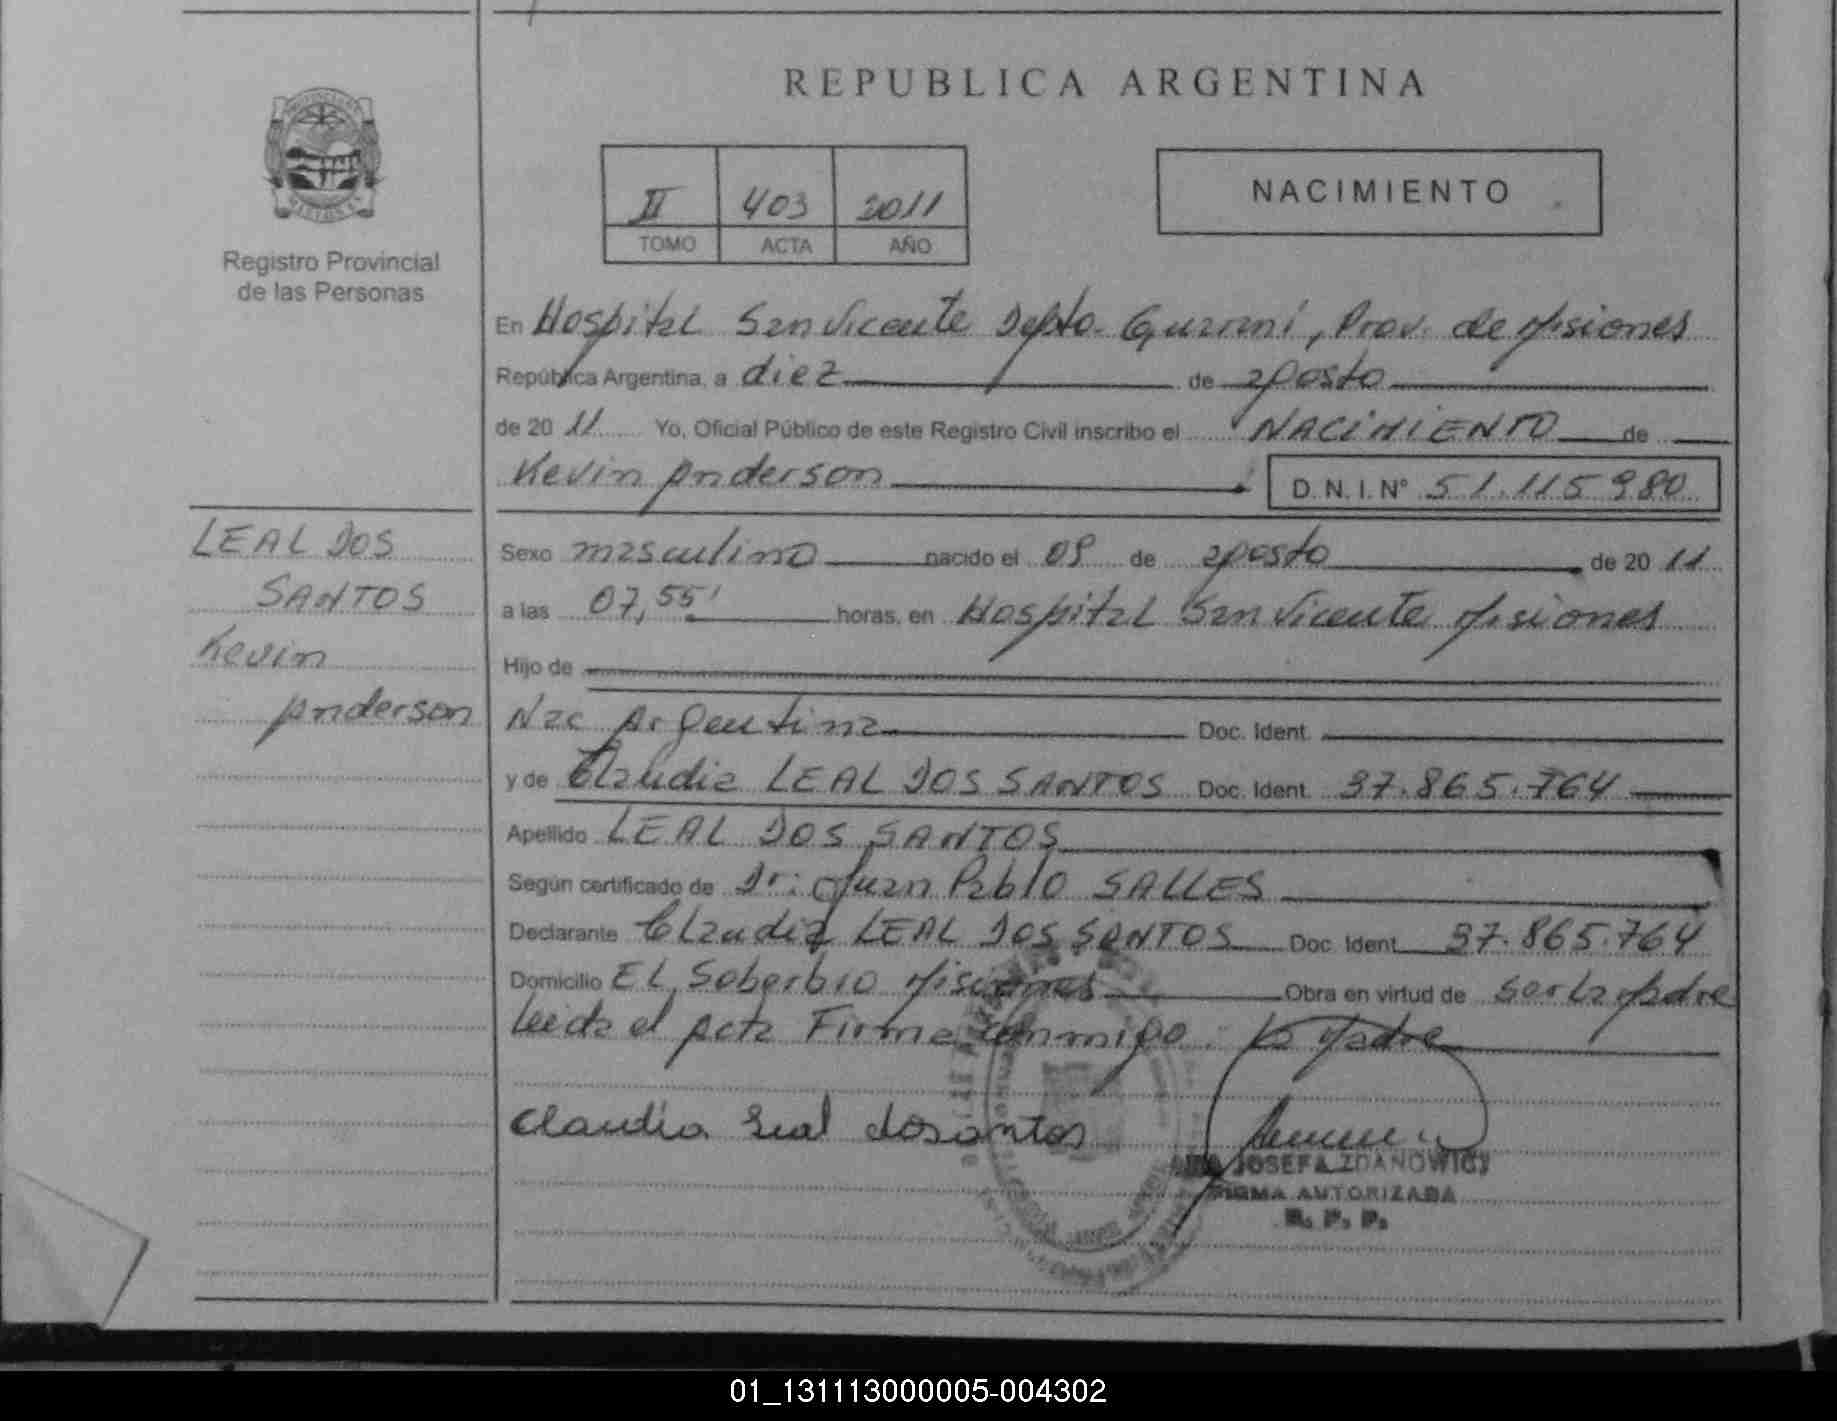 REPUBLICA ARGENTINA
II 403 2011
TOMO ACTA AÑO
NACIMIENTO
Registro Provincial
de las Personas
LEAL DOS
SANTOS
Kevin
Anderson
En Hospital San Vicente Depto. Guarani, Prov. de Misiones
República Argentina, a diez de agosto
de 2011 Yo, Oficial Público de este Registro Civil inscribo el NACIMIENTO de
Kevin Anderson D.N.I. Nº 51.115980
Sexo masculino nacido el 09 de agosto de 2011
a las 07,55' horas, en Hospital San Vicente Misiones
Hijo de
Nac Argentina Doc. Ident.
y de Claudia LEAL DOS SANTOS Doc. Ident. 37.865.764
Apellido LEAL DOS SANTOS
Según certificado de Dr: Juan Pablo SALLES
Declarante Claudia LEAL DOS SANTOS Doc. Ident. 37.865.764
Domicilio EL Soberbio Misiones Obra en virtud de ser la Madre
Leida el Acta Firma conmigo: La Madre
Claudia Leal dosantos
JOSEFA ZDANOWICZ
FIRMA AUTORIZADA
R. P. P.
01_131113000005-004302